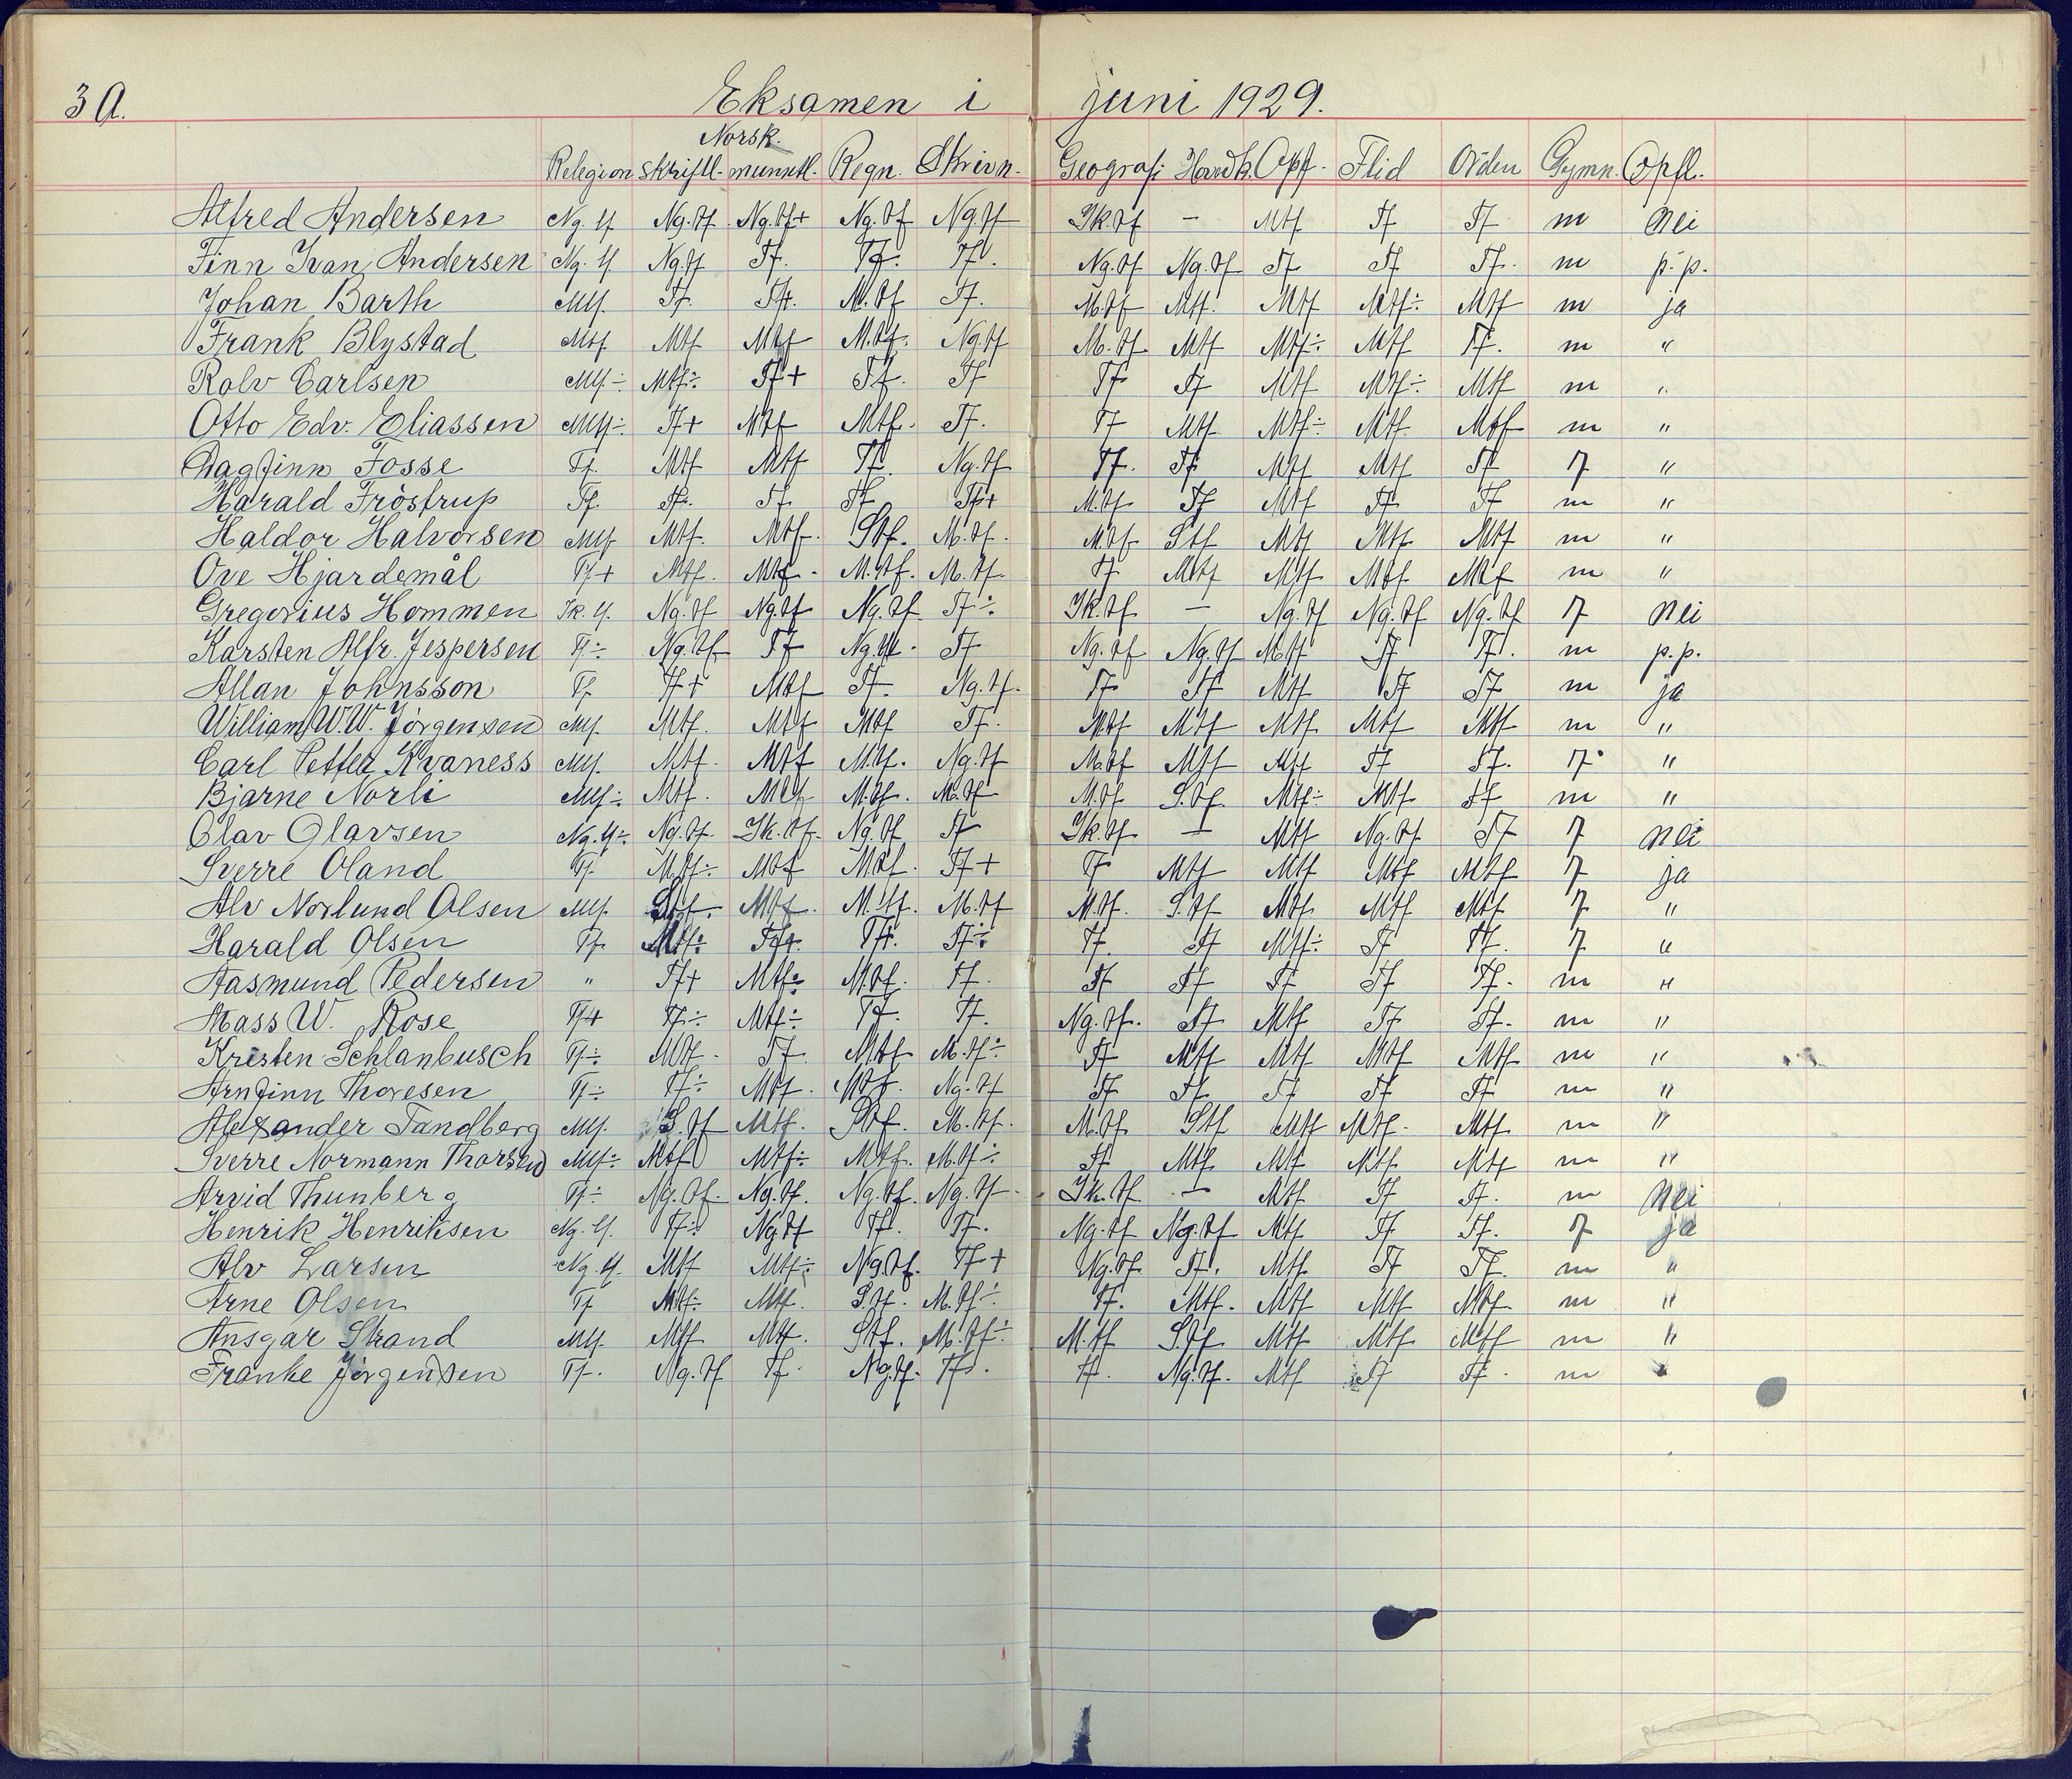 3 A. Eksamen i juni 1929.
Norsk.
Religion skriftl. munntl. Regn. Skrivn. Geografi Håndk. Opf. Flid Orden Gymn. Opfl.
Alfred Andersen Ng. tf Ng. tf Ng. tf+ Ng. tf Ng. tf Ik. tf — Mtf Tf Tf m nei
Finn Ivan Andersen Ng. tf. Ng. tf Tf. Tf. Tf. Ng. tf Ng. tf Tf Tf Tf. m p.p.
Johan Barth Mtf. Tf. Tf. M.tf Tf. M.tf Mtf. Mtf Mtf÷ Mtf m ja
Frank Blystad Mtf. Mtf Mtf M.tf. Ng.tf M.tf Mtf Mtf÷ Mtf Tf. m "
Rolv Carlsen Mtf.÷ Mtf÷ Tf+ Tf. Tf Tf Tf Mtf Mtf÷ Mtf m "
Otto Edv. Eliassen Mtf÷ Tf+ Mtf Mtf. Tf. Tf Mtf Mtf÷ Mtf Mtf m "
Dagfinn Fosse Tf. Mtf Mtf Tf. Ng.tf Tf. Tf Mtf Mtf Tf 7 "
Harald Fröstrup Tf. Tf. Tf. Tf Tf+ M.tf Tf Mtf Tf Tf m "
Haldor Halvorsen Mtf Mtf. Mtf. Stf. M.tf. M.tf Stf Mtf Mtf Mtf m "
Ove Hjardemål Tf+ Mtf. Mtf. M.tf. M.tf. Tf Mtf Mtf Mtf Mtf m "
Gregorius Hommen Ik. tf. Ng.tf Ng.tf Ng.tf Tf÷ Ik.tf — Ng.tf Ng.tf Ng.tf 7 nei
Karsten Alfr. Jespersen Tf÷ Ng.tf Tf Ng.tf. Tf Ng.tf Ng.tf Mtf Tf Tf. m p.p.
Allan Johnsson Tf Tf+ Mtf Tf. Ng.tf. Tf Tf Mtf Tf Tf m ja
William W.W. Jörgensen Mtf. Mtf. Mtf Mtf Tf. Mtf Mtf Mtf Mtf Mtf m "
Carl Petter Kvaness Mtf. Mtf. Mtf M.tf. Ng.tf M.tf Mtf Mtf Tf Tf. 7. "
Bjarne Norli Mtf÷ Mtf. Mtf M.tf. M.tf M.tf S.tf. Mtf÷ Mtf Tf m "
Olav Olavsen Ng.tf÷ Ng.tf. Ik.tf. Ng.tf Tf Ik.tf — Mtf Ng.tf Tf 7 nei
Sverre Oland Tf. M.tf÷ Mtf M.tf. Tf+ Tf Mtf Mtf Mtf Mtf 7 ja
Alv Norlund Olsen Mtf. Stf. Mtf. M.tf. M.tf M.tf. S.tf Mtf Mtf Mtf 7 "
Harald Olsen Tf. Mtf÷ Tf. Tf. Tf÷ Tf. Tf Mtf÷ Tf Tf. 7 "
Aasmund Pedersen " Tf+ Mtf÷ M.tf. Tf. Tf Tf Tf Tf Tf. m "
Mass W. Rose Tf+ Tf÷ Mtf÷ Tf. Tf. Ng.tf. Tf Mtf Tf Tf. m "
Kristen Schlanbusch Tf÷ Mtf. Tf Mtf M.tf÷ Tf Mtf Mtf Mtf Mtf m "
Arnfinn Thoresen Tf÷ Tf÷ Mtf. Mtf. Ng.tf Tf Tf Tf Tf Tf m "
Alexander Tandberg Mtf. S.tf Mtf. Stf. M.tf. M.tf Stf Mtf Mtf. Mtf m "
Sverre Normann Thorsen Mtf÷ Mtf Mtf÷ Mtf. M.tf÷ Tf Mtf Mtf Mtf Mtf m "
Arvid Thunberg Tf÷ Ng.tf. Ng.tf. Ng.tf. Ng.tf. Ik.tf — Mtf Tf Tf. m nei
Henrik Henriksen Ng.tf. Tf÷ Ng.tf Tf. Tf. Ng.tf Ng.tf Mtf Tf Tf. 7 ja
Alv Larsen Ng.tf. Mtf Mtf÷ Ng.tf. Tf+ Ng.tf. Tf. Mtf Tf Tf. m "
Arne Olsen Tf Mtf÷ Mtf. S.tf. M.tf÷ Tf. Mtf. Mtf Mtf Mtf. m "
Ansgar Strand Mtf. Mtf Mtf. Stf. M.tf÷ M.tf S.tf Mtf Mtf Mtf m "
Franke Jörgensen Tf. Ng.tf Tf. Ng.tf. Tf. Tf. Ng.tf. Mtf Tf Tf. m "